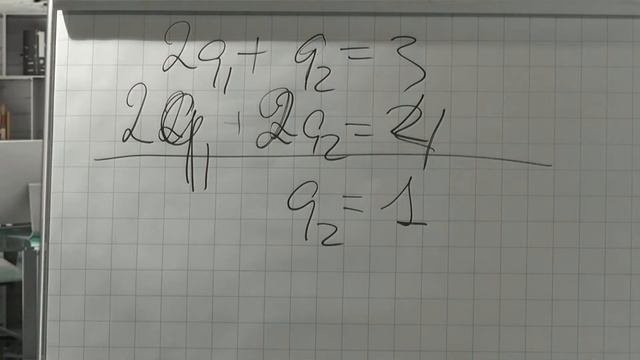 2q₁ + q₂ = 3
2q₁ + 2q₂ = 4
q₂ = 1